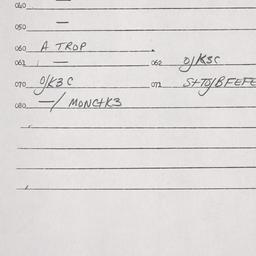 040 —
050 —
060 A TROP
061 — 062 O/K3C
070 O/K3C 071 S+TO/BFEFE
080 —/ MONC+K3